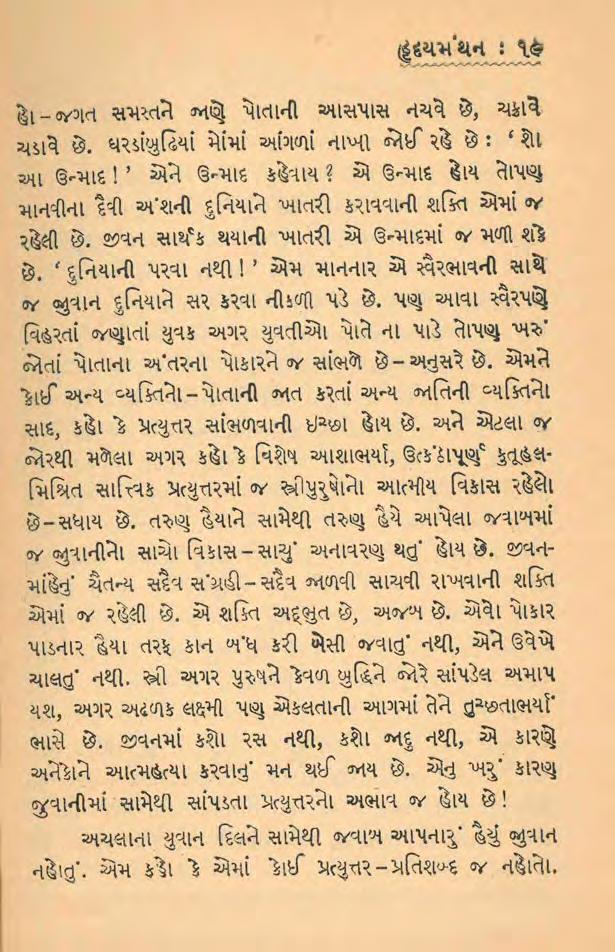 હૃદયમંથન : ૧૯
હો – જગત સમસ્તને જાણે પોતાની આસપાસ નચવે છે, ચક્રાવે
ચડાવે છે. ઘરડાંબુઢિયાં મોંમાં આંગળાં નાખી જોઈ રહે છે : ‘ શો
આ ઉન્માદ ! ’ એને ઉન્માદ કહેવાય ? એ ઉન્માદ હોય તોપણ
માનવીના દૈવી અંશની દુનિયાને ખાતરી કરાવવાની શક્તિ એમાં જ
રહેલી છે. જીવન સાર્થક થયાની ખાતરી એ ઉન્માદમાં જ મળી શકે
છે. ‘ દુનિયાની પરવા નથી ! ’ એમ માનનાર એ સ્વૈરભાવની સાથે
જ જુવાન દુનિયાને સર કરવા નીકળી પડે છે. પણ આવા સ્વૈરપણે
વિહરતાં જણાતાં યુવક અગર યુવતીઓ પોતે ના પાડે તોપણ ખરું
જોતાં પોતાના અંતરના પોકારને જ સાંભળે છે – અનુસરે છે. એમને
કોઈ અન્ય વ્યક્તિનો – પોતાની જાત કરતાં અન્ય જાતિની વ્યક્તિનો
સાદ, કહો કે પ્રત્યુત્તર સાંભળવાની ઇચ્છા હોય છે. અને એટલા જ
જોરથી મળેલા અગર કહો કે વિશેષ આશાભર્યા, ઉત્કંઠાપૂર્ણ કુતૂહલ-
મિશ્રિત સાત્ત્વિક પ્રત્યુત્તરમાં જ સ્ત્રીપુરુષોનો આત્મીય વિકાસ રહેલો
છે – સધાય છે. તરુણ હૈયાને સામેથી તરુણ હૈયે આપેલા જવાબમાં
જ જુવાનીનો સાચો વિકાસ – સાચું અનાવરણ થતું હોય છે. જીવન-
માંહેનું ચૈતન્ય સદૈવ સંગ્રહી – સદૈવ જાળવી સાચવી રાખવાની શક્તિ
એમાં જ રહેલી છે. એ શક્તિ અદ્ભુત છે, અજબ છે. એવો પોકાર
પાડનાર હૈયા તરફ કાન બંધ કરી બેસી જવાતું નથી, એને ઉવેખે
ચાલતું નથી. સ્ત્રી અગર પુરુષને કેવળ બુદ્ધિને જોરે સાંપડેલ અમાપ
યશ, અગર અઢળક લક્ષ્મી પણ એકલતાની આગમાં તેને તુચ્છતાભર્યાં
ભાસે છે. જીવનમાં કશો રસ નથી, કશો જાદુ નથી, એ કારણે
અનેકોને આત્મહત્યા કરવાનું મન થઈ જાય છે. એનું ખરું કારણ
જુવાનીમાં સામેથી સાંપડતા પ્રત્યુત્તરનો અભાવ જ હોય છે !
અચલાના યુવાન દિલને સામેથી જવાબ આપનારું હૈયું જુવાન
નહોતું. એમ કહો કે એમાં કોઈ પ્રત્યુત્તર – પ્રતિશબ્દ જ નહોતો.